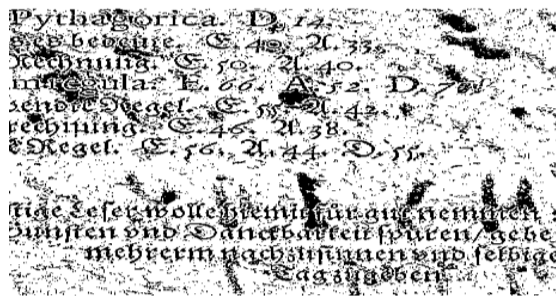 Pythagorica. D. 14.
es bedeute. E. 40. A. 33.
Rechnung. E. 50. A. 40.
E. 66. A. 52. D.
Regel. E. 55. A. 42.
rechnung. E. 46. A. 38.
Regel. E. 56. A. 44. D. 55.
Leser wolle hiemit für gut nemmen
vnd Danckbarkeit spüren/
mehrerm nachzusinnen vnd selbige
Tag zugeben.